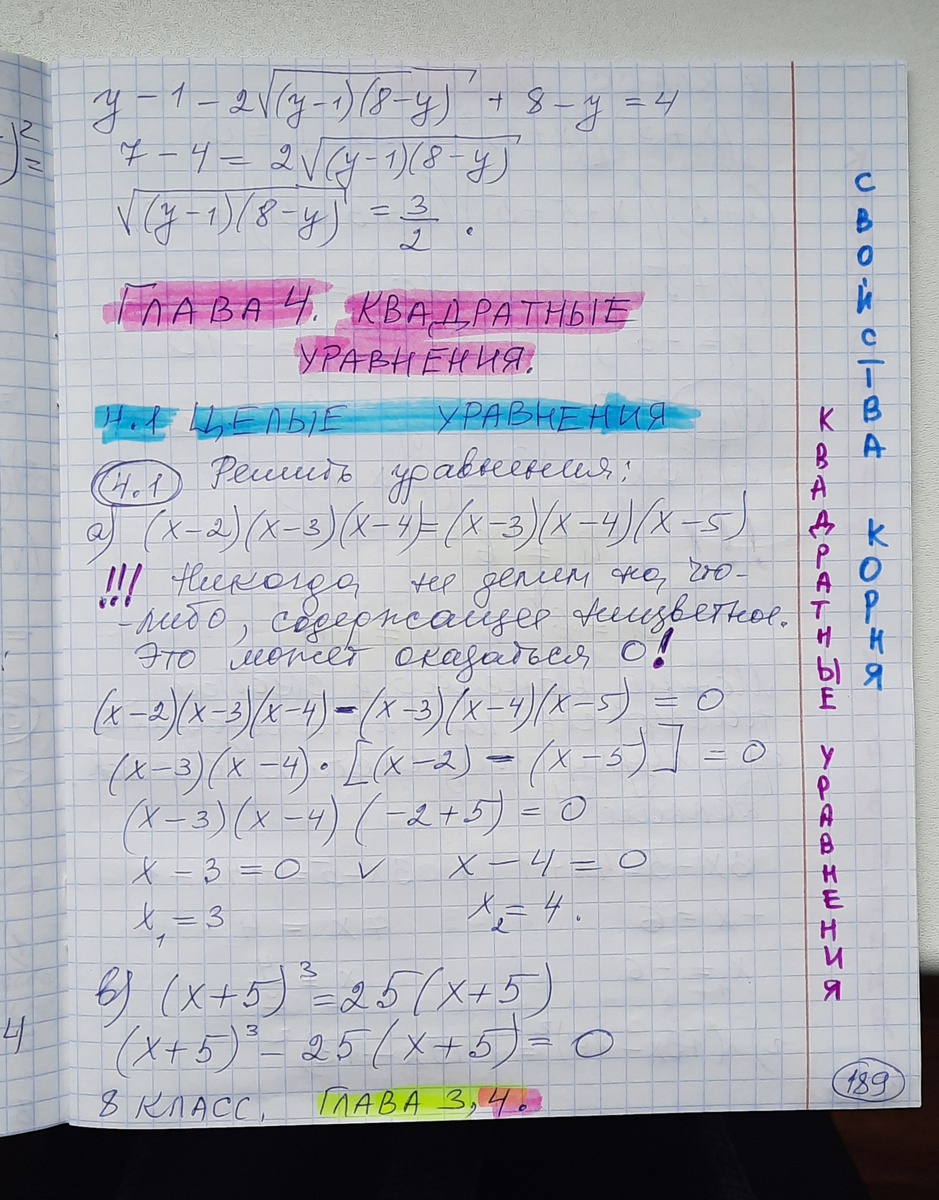 )² =
4
y - 1 - 2√(y-1)(8-y) + 8 - y = 4
7 - 4 = 2√(y-1)(8-y)
√(y-1)(8-y) = 3/2.
ГЛАВА 4. КВАДРАТНЫЕ
УРАВНЕНИЯ.
4.1 ЦЕЛЫЕ УРАВНЕНИЯ
4.1 Решить уравнения:
а) (x-2)(x-3)(x-4)=(x-3)(x-4)(x-5)
!!! Никогда не делим на что-
-либо, содержащее неизвестное.
Это может оказаться 0!
(x-2)(x-3)(x-4)-(x-3)(x-4)(x-5) = 0
(x-3)(x-4)·[(x-2) - (x-5)] = 0
(x-3)(x-4)(-2+5) = 0
x - 3 = 0 ∨ x - 4 = 0
x₁ = 3 x₂ = 4.
в) (x+5)³ = 25(x+5)
(x+5)³ - 25(x+5) = 0
8 КЛАСС. ГЛАВА 3, 4.
КВАДРАТНЫЕ УРАВНЕНИЯ
СВОЙСТВА КОРНЯ
189